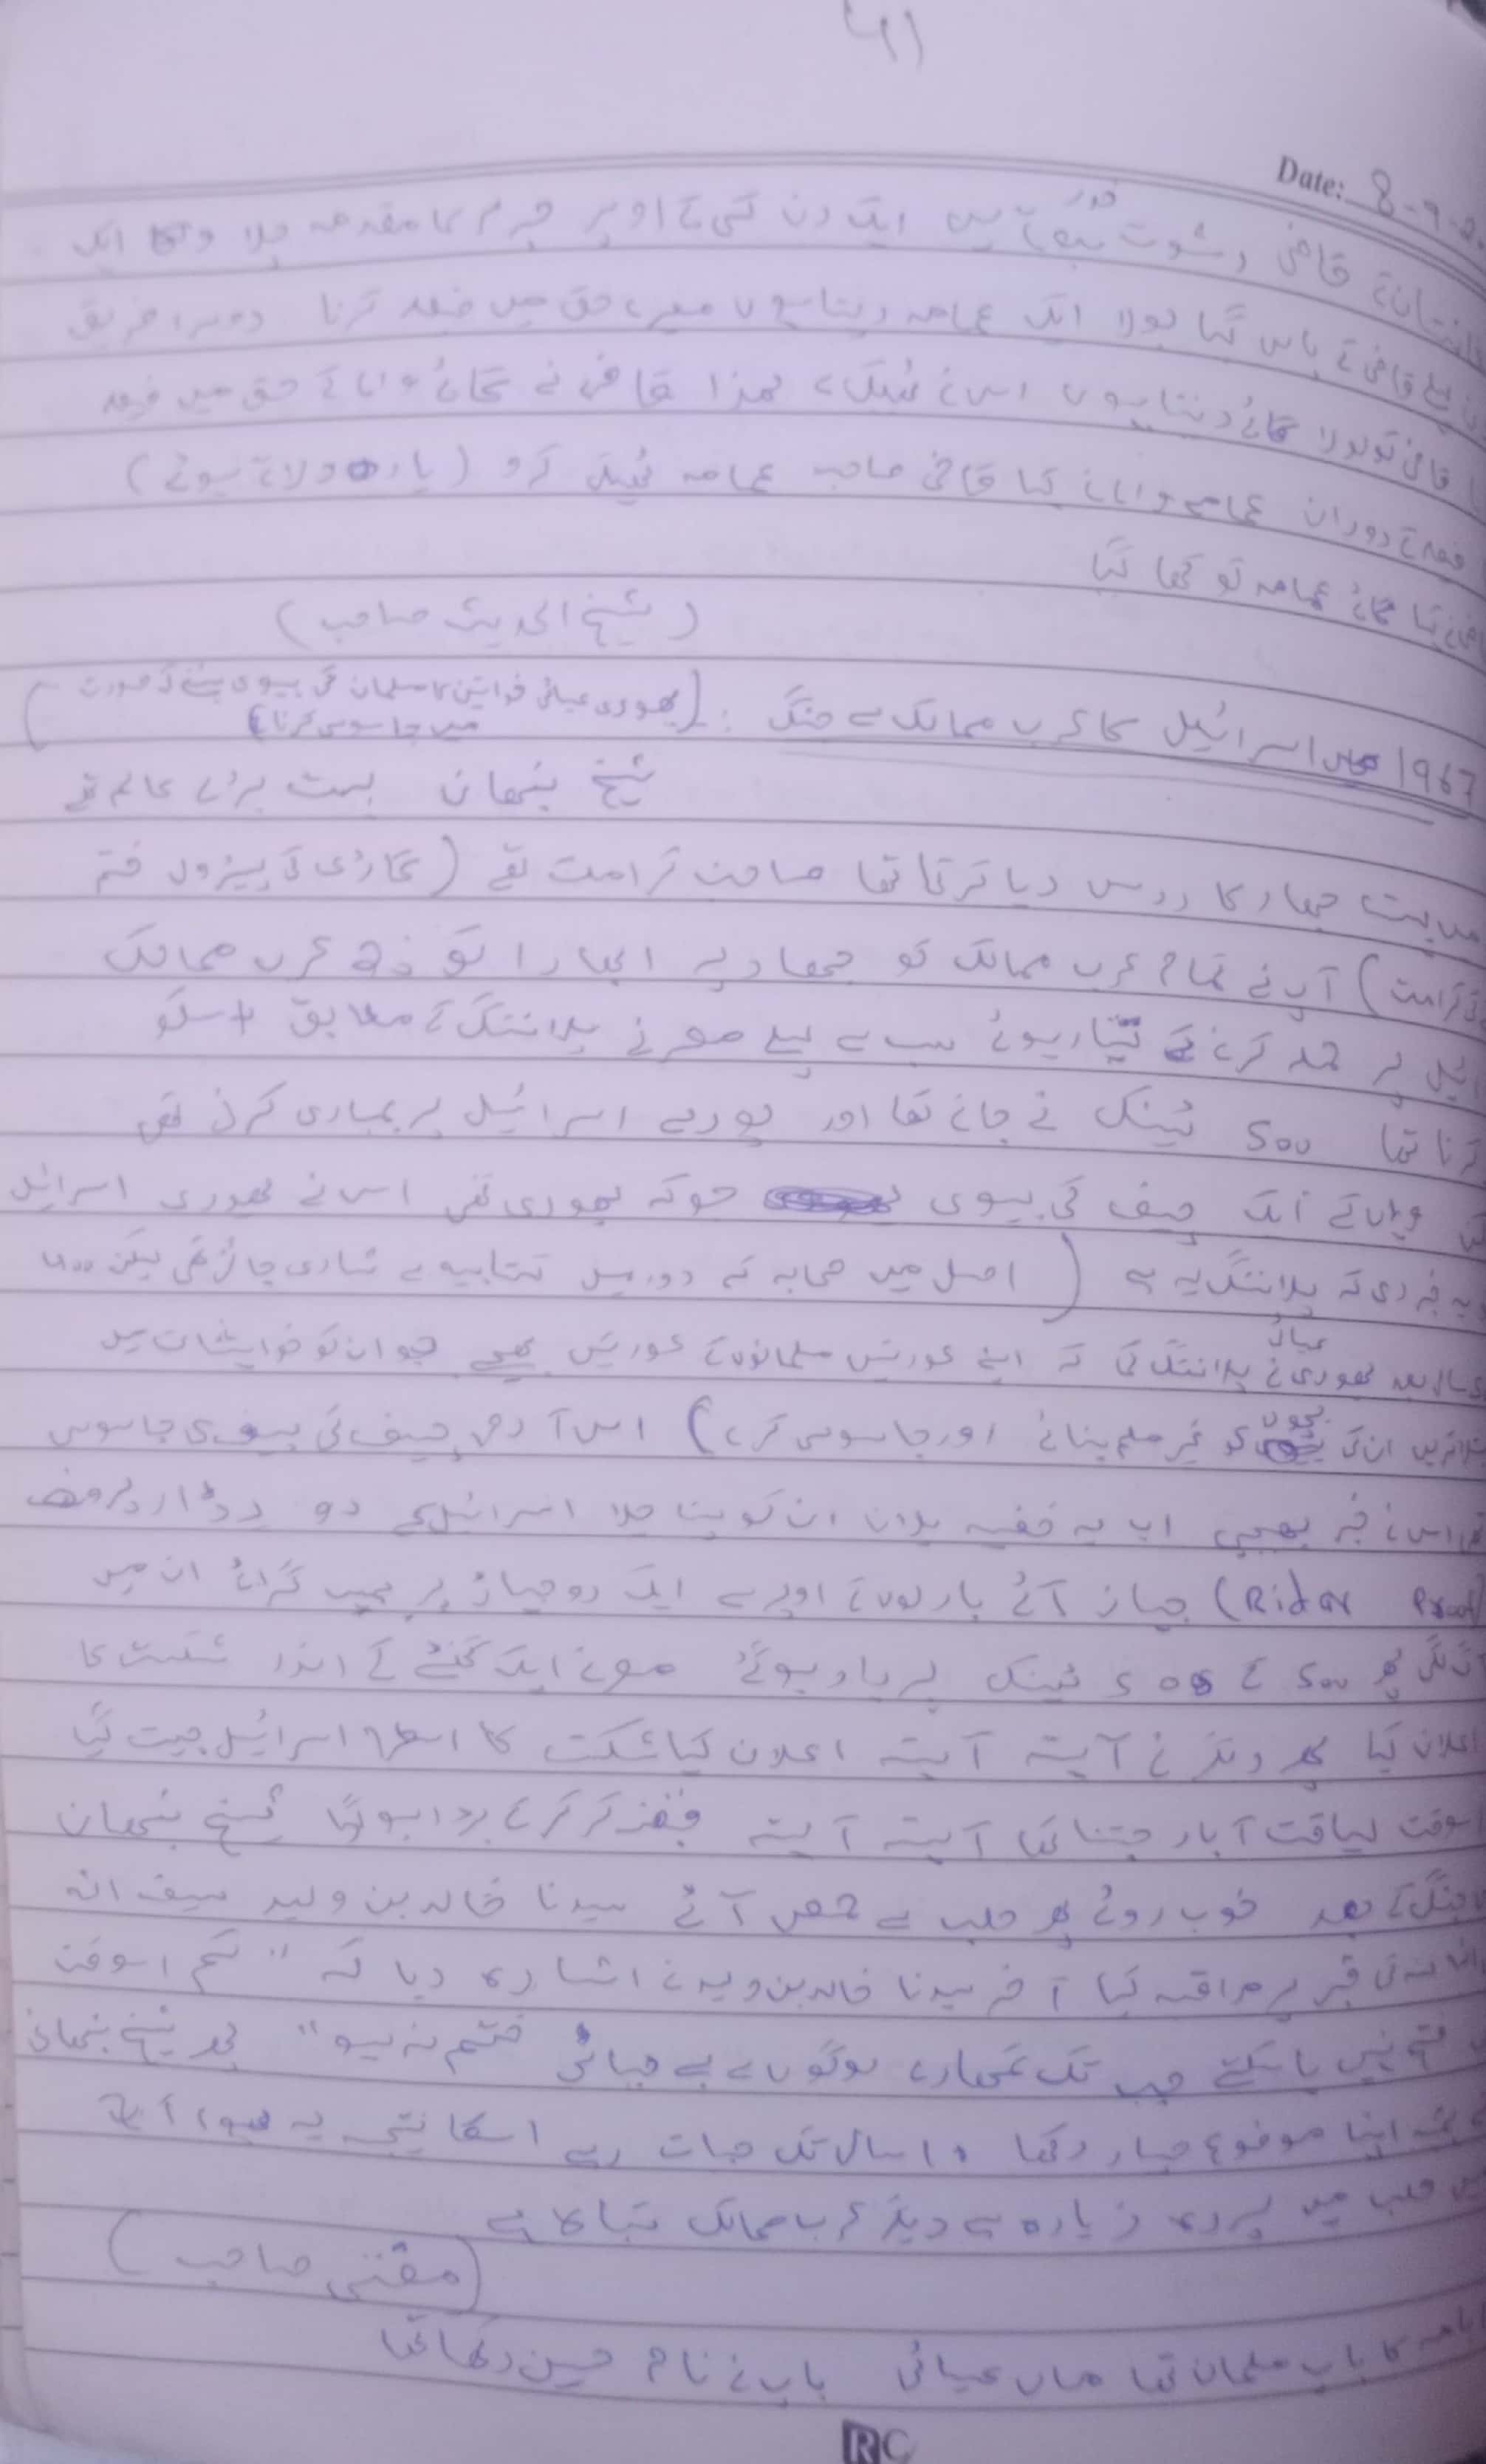 41
Date: 8-9-2
قاضی رشوت خور ہیں ایک دن کسی کے اوپر جرم کا مقدمہ چلا ایک
قاضی کے پاس گیا بولا ایک عمامہ دیتا ہوں میرے حق میں فیصلہ کرنا دوسرا فریق
قاضی کو بولا گائے دیتا ہوں اس نے ٹھیک ہے لہذا قاضی نے گائے والے کے حق میں فیصلہ
کے دوران عمامہ والے نے کہا قاضی صاحب عمامہ ٹھیک کرو (یاد دلاتے ہوئے)
گائے عمامہ کو کھا گیا
(شیخ الحدیث صاحب)
1967 میں اسرائیل کا عرب ممالک سے جنگ : (یہودی عیسائی خواتین کا مسلمان کی بیوی بننے کی صورت
میں جاسوسی کرنا)
شیخ بنھان بہت بڑے عالم تھے
جہاد کا درس دیا کرتا تھا صاحب کرامت تھے (گاڑی کی پیٹرول ختم
کرامت) آپ نے تمام عرب ممالک کو جہاد پہ ابھارا تو عرب ممالک
پر حملہ کرنے کے تیار ہوئے سب سے پہلے مصر نے پلاننگ کے مطابق اسکو
کرنا تھا 500 ٹینک نے جانے تھا اور پورے اسرائیل پر بمباری کرنی تھی
وہاں کے ایک چیف کی بیوی جو کہ یہودی تھی اس نے یہودی اسرائیل
یہ خبر دی کہ پلاننگ یہ ہے ( اصل میں صحابہ کے دور میں کتابیہ سے شادی جائز تھی لیکن
سال بعد یہودی عیسائی نے پلاننگ کی کہ اپنے عورتیں مسلمانوں کے عورتیں بھیجے جو ان کو خواہشات میں
ان کی بچوں کو غیر مسلم بنائے اور جاسوسی کرے) اس آرمی چیف کی بیوی جاسوس
تھی اس نے خبر بھیجی اب یہ خفیہ پلان ان کو پتا چلا اسرائیل کے دو رڈار پروف
(Ridar Proof) جہاز آئے بادلوں کے اوپر سے ایک دو جہاز پر بمب گرائے ان میں
آگ لگی پھر 500 کے 500 ٹینک برباد ہوگئے مصر نے ایک گھنٹے کے اندر شکست کا
اعلان کیا پھر دیگر نے آہستہ آہستہ اعلان کیا شکست کا اسطرح اسرائیل جیت گیا
اسوقت لیاقت آباد جتنا تھا آہستہ آہستہ قبضہ کر کر کے بڑا ہو گیا شیخ بنھان
جنگ کے بعد خوب روئے پھر حلب سے حمص آئے سیدنا خالد بن ولید سیف اللہ
کی قبر پر مراقبہ کیا آخر سیدنا خالد بن ولید نے اشارہ دیا کہ "تم اسوقت
فتح نہیں پا سکتے جب تک تمھارے لوگوں سے بے حیائی ختم نہ ہو" پھر شیخ بنھان
نے اپنا موضوع حیاء رکھا 10 سال تک حیات رہے اسکا نتیجہ یہ ہوا آج
حلب میں پردہ زیادہ ہے دیگر عرب ممالک تباہ ہے
(مفتی صاحب)
کا باپ مسلمان تھا ماں عیسائی باپ نے نام حسین رکھا تھا
RC